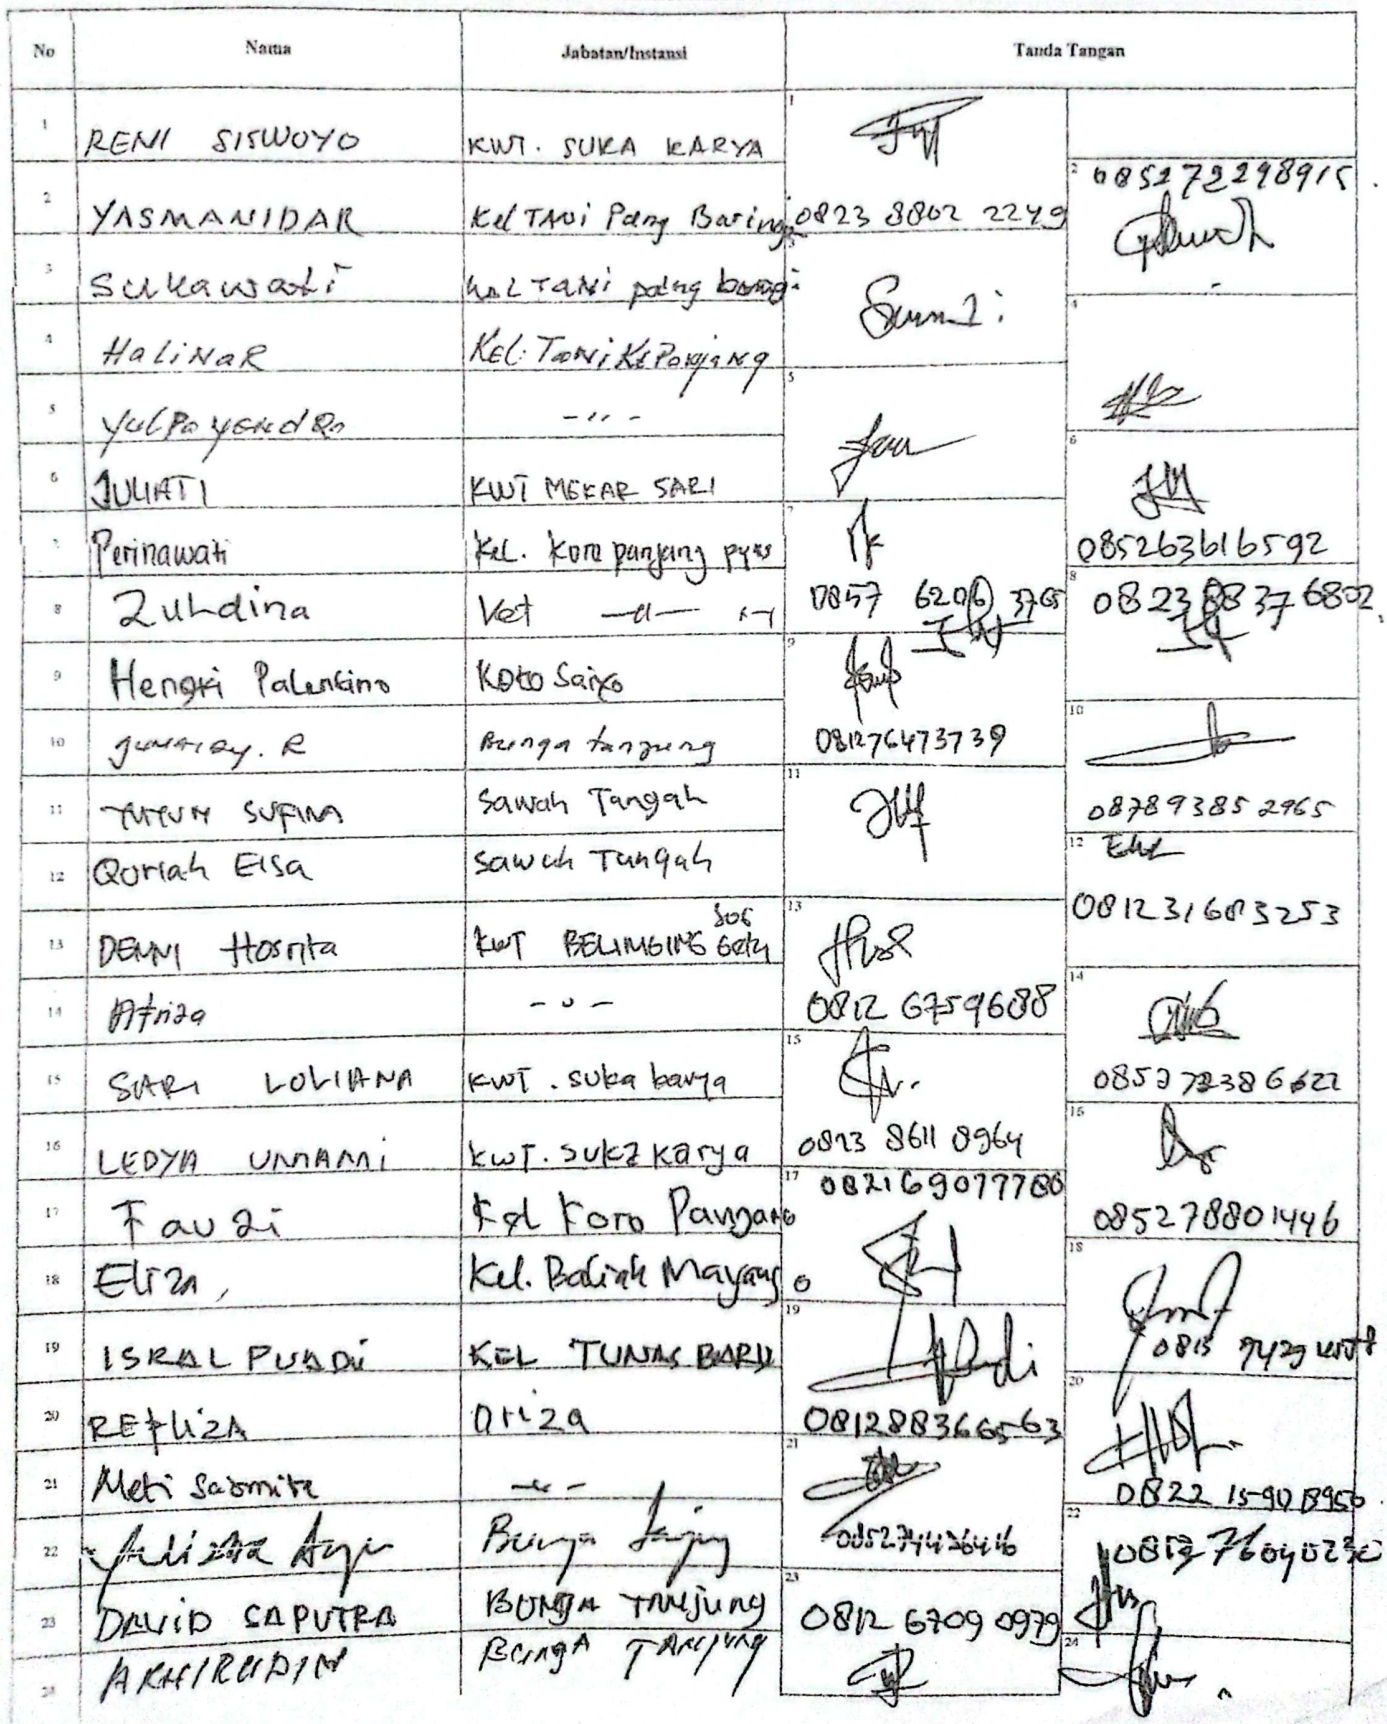 No Nama Jabatan/Instansi Tanda Tangan
1 RENI SISWOYO KWT. SUKA KARYA 1
2 YASMANIDAR Kel TANi Pang Baringi 0823 8802 2249 2 085272298915
3 Sukawati kel TANi pdang baringi 3
4 HaliNaR KEL. TaNi Kt Panjang 4
5 Yulpa yendRa - " - 5
6 JULIATI KWT MEKAR SARI 6
Perinawati Kel. Koro panjang pyks 7 085263616592
8 Zuhdina Ket — " — 0857 6206 3765 8 0823 8837 6802
9 Hengki Palentino Koto Saiyo 9
10 Junaidy. R Bunga tanjung 081276473739 10
11 YUYUN SUFINA Sawah Tangah 11 087893852965
12 Qoriah Elsa Sawah Tangah 12 081231683253
13 DENNI Hosnita KWT BELIMBING 13
14 Afriza - " - 0812 6759688 14
15 SARI LOLIANA KWT. suka karya 15 085272386622
16 LEDYA UMAMI KWT. suka karya 0823 8611 8964 16
17 Fauzi Kel Koro Panjang 17 082169077780 085278801446
18 Eliza, Kel. Baliak Mayang 18
19 ISRAL PUADi KEL TUNAS BARU 19 0813 7429
20 REFLIZA Oriza 081288366563 20
21 Meti Sasmita - " - 21 0822 1590 8950
22 Yulizra Ayu Bunga Tanjung 085274426446 22
23 DAVID SAPUTRA BUNGA TANJUNG 23 0812 6709 0979
24 AKHIRUDIN BUNGA TANJUNG 24